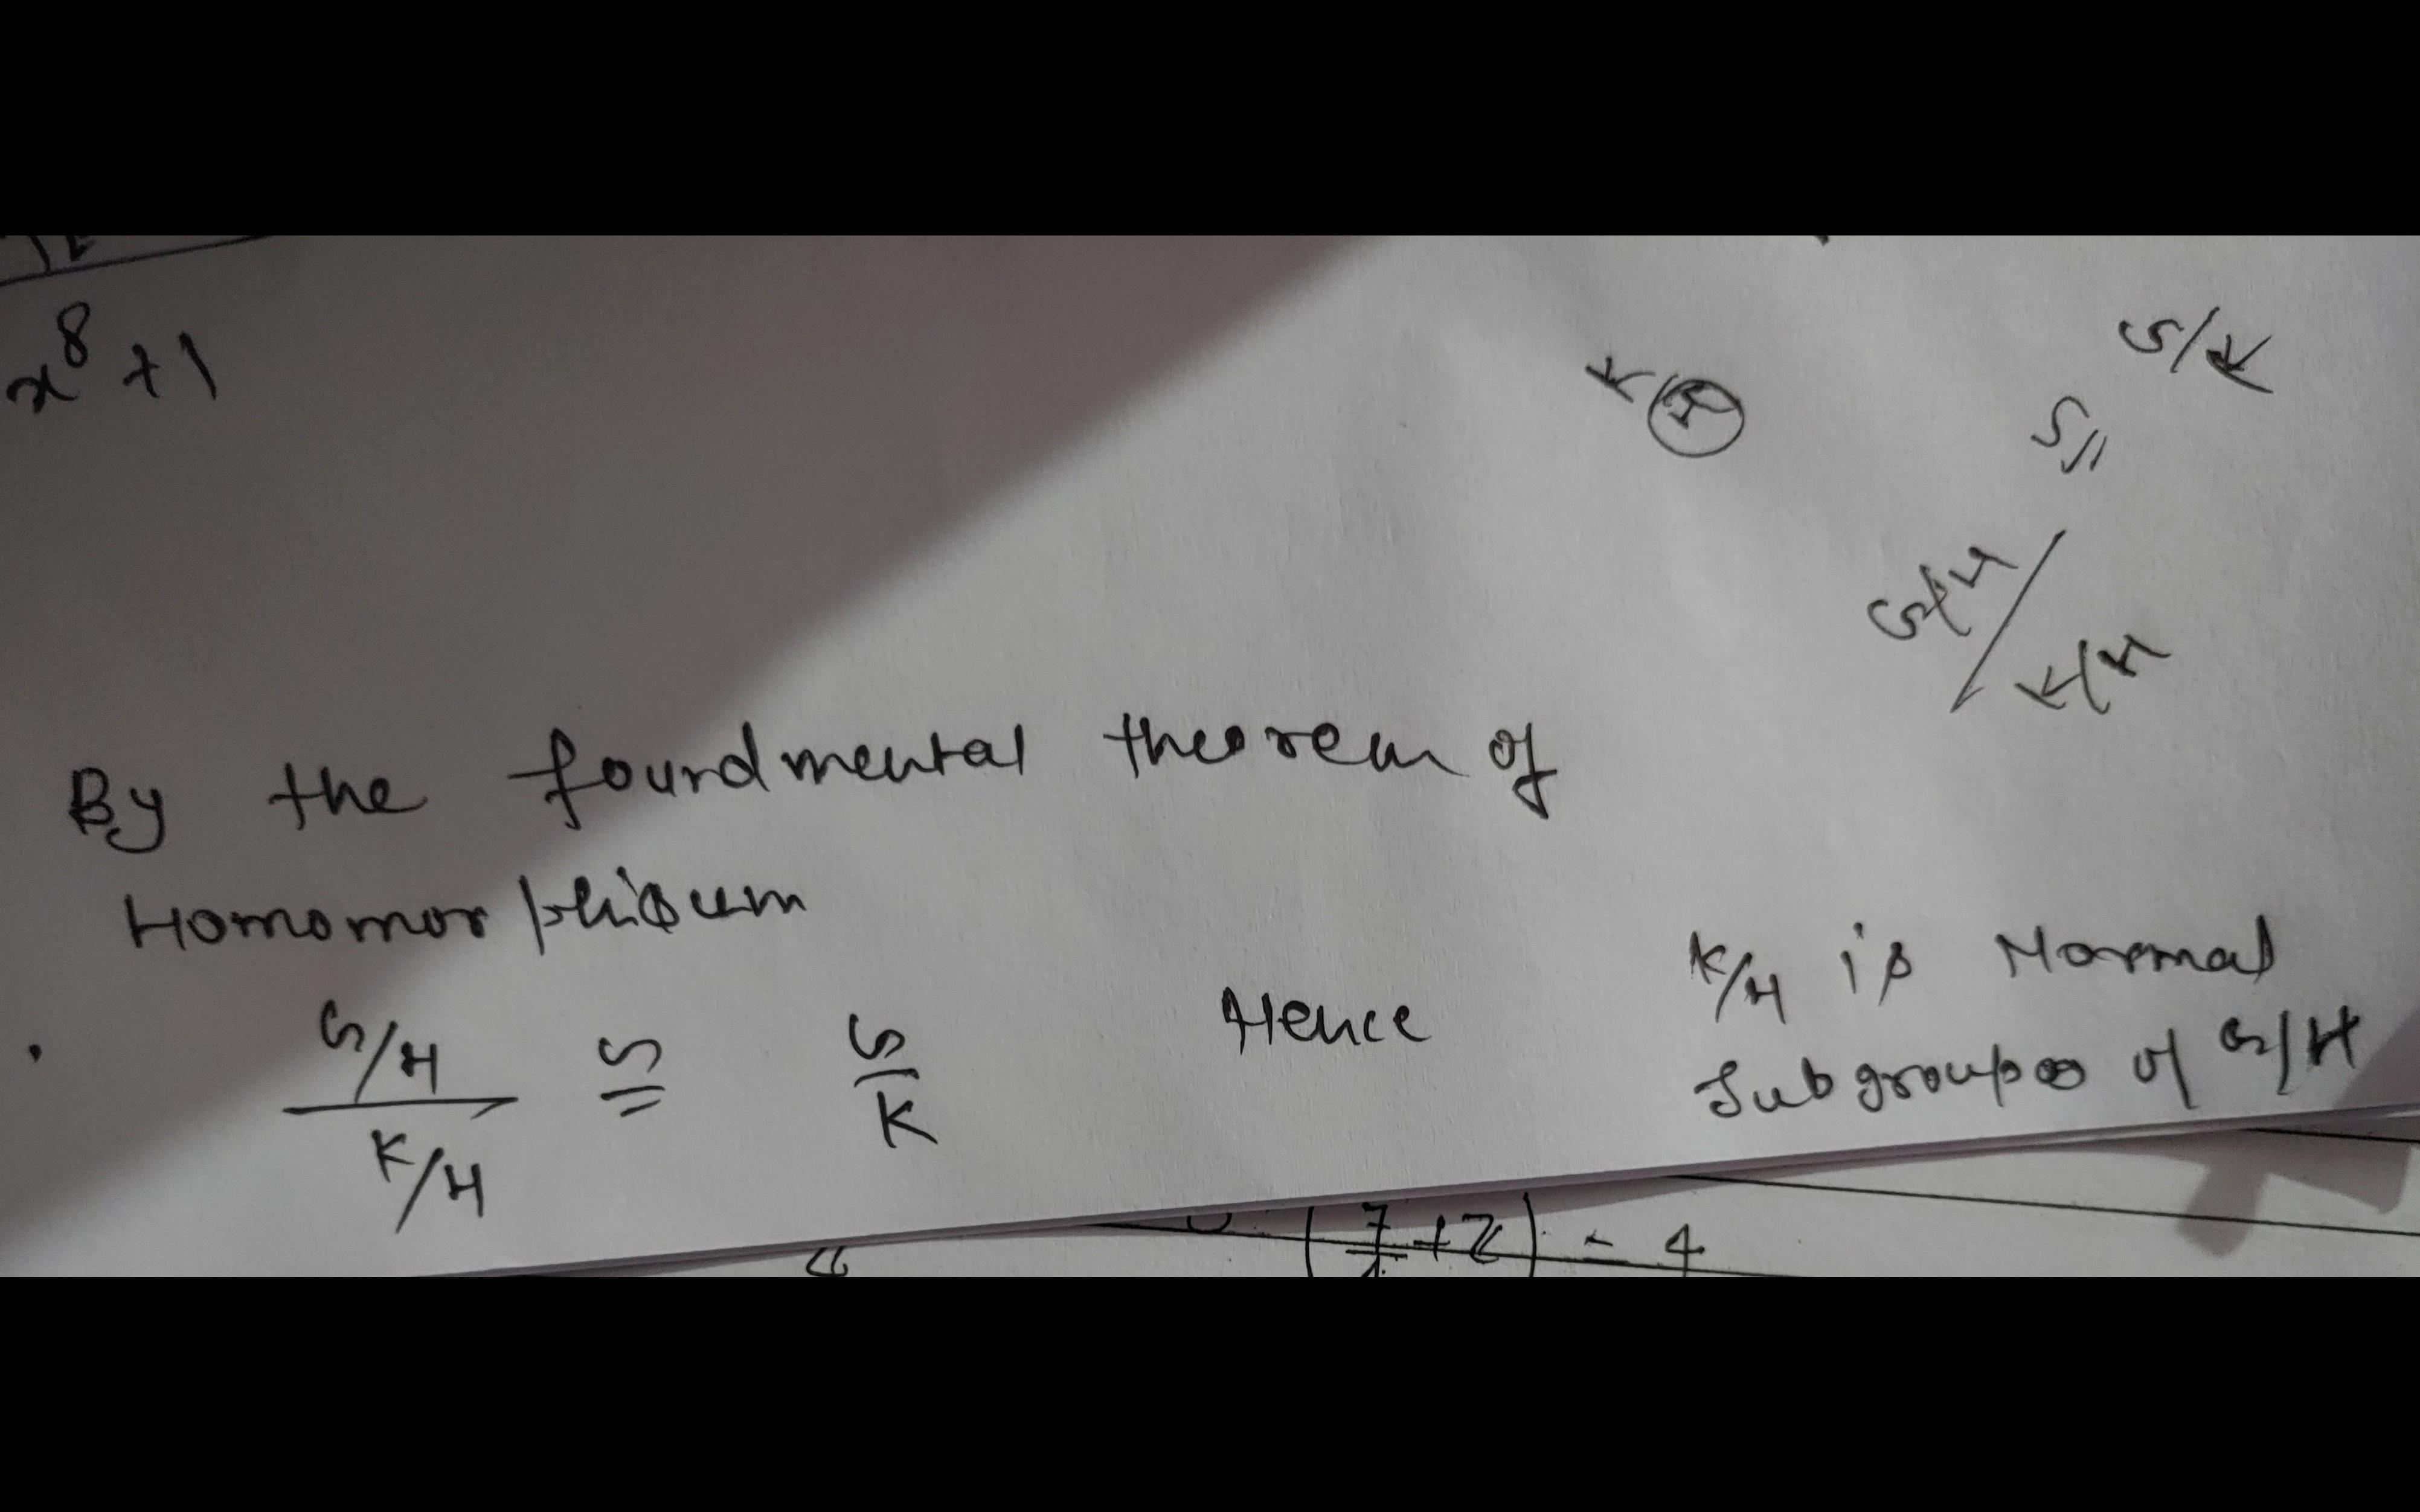 x⁸ + 1
K
G/K
≅
G/H / K/H
By the foundmental theorem of
Homomorphisum
G/H / K/H ≅ G/K Hence K/H is Normal
Subgroup of G/H
(7/ + 2) - 4